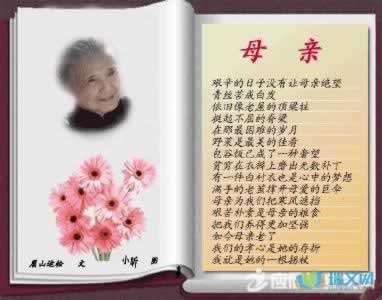 母 亲
艰辛的日子没有让母亲绝望
青丝苦成白发
依旧像老屋的顶梁柱
挺起不屈的脊梁
在那最困难的岁月
野菜是最美的佳肴
包谷饭已成了一种奢望
背篼在衣裳上磨出无数补丁
有一件白衬衣也是心中的梦想
满手的老茧撑开母爱的巨伞
母亲为我们把寒风遮挡
艰苦朴素是母亲的粮食
把我们养得更加坚强
如今母亲老了
我们的孝心是她的存折
我就是她的一根拐杖
眉山远松 文 小昕 图
瑞文网